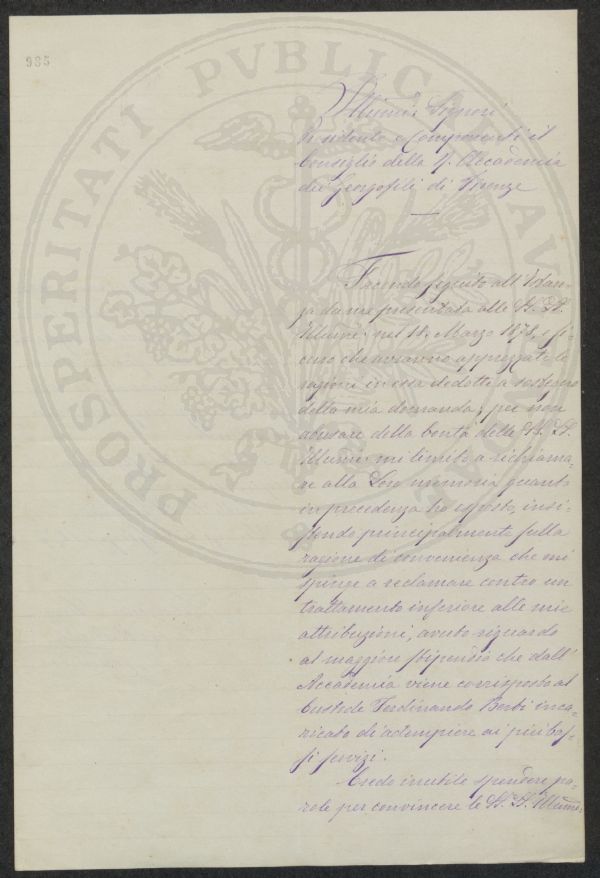 985
PROSPERITATI PVBLICAE AV
Illmi Signori
Presidente e Componenti il
Consiglio della R. Accademia
dei Georgofili di Firenze
Facendo seguito all'Istan-
za da me presentata alle SS. LL.
Illume. nel 18. Marzo 1878, e si-
curo che avranno apprezzate le
ragioni in essa dedotte a sostegno
della mia domanda, per non
abusare della bontà delle SS. LL.
Illume. mi limito a richiama-
re alla Loro memoria quanto
in precedenza ho esposto, insi-
stendo principalmente sulla
ragione di convenienza che mi
spinge a reclamare contro un
trattamento inferiore alle mie
attribuzioni, avuto riguardo
al maggiore stipendio che dall'
Accademia viene corrisposto al
Custode Ferdinando Berti inca-
ricato di adempiere ai più bas-
si servizi.
Credo inutile spendere pa-
role per convincere le SS. LL. Illume.